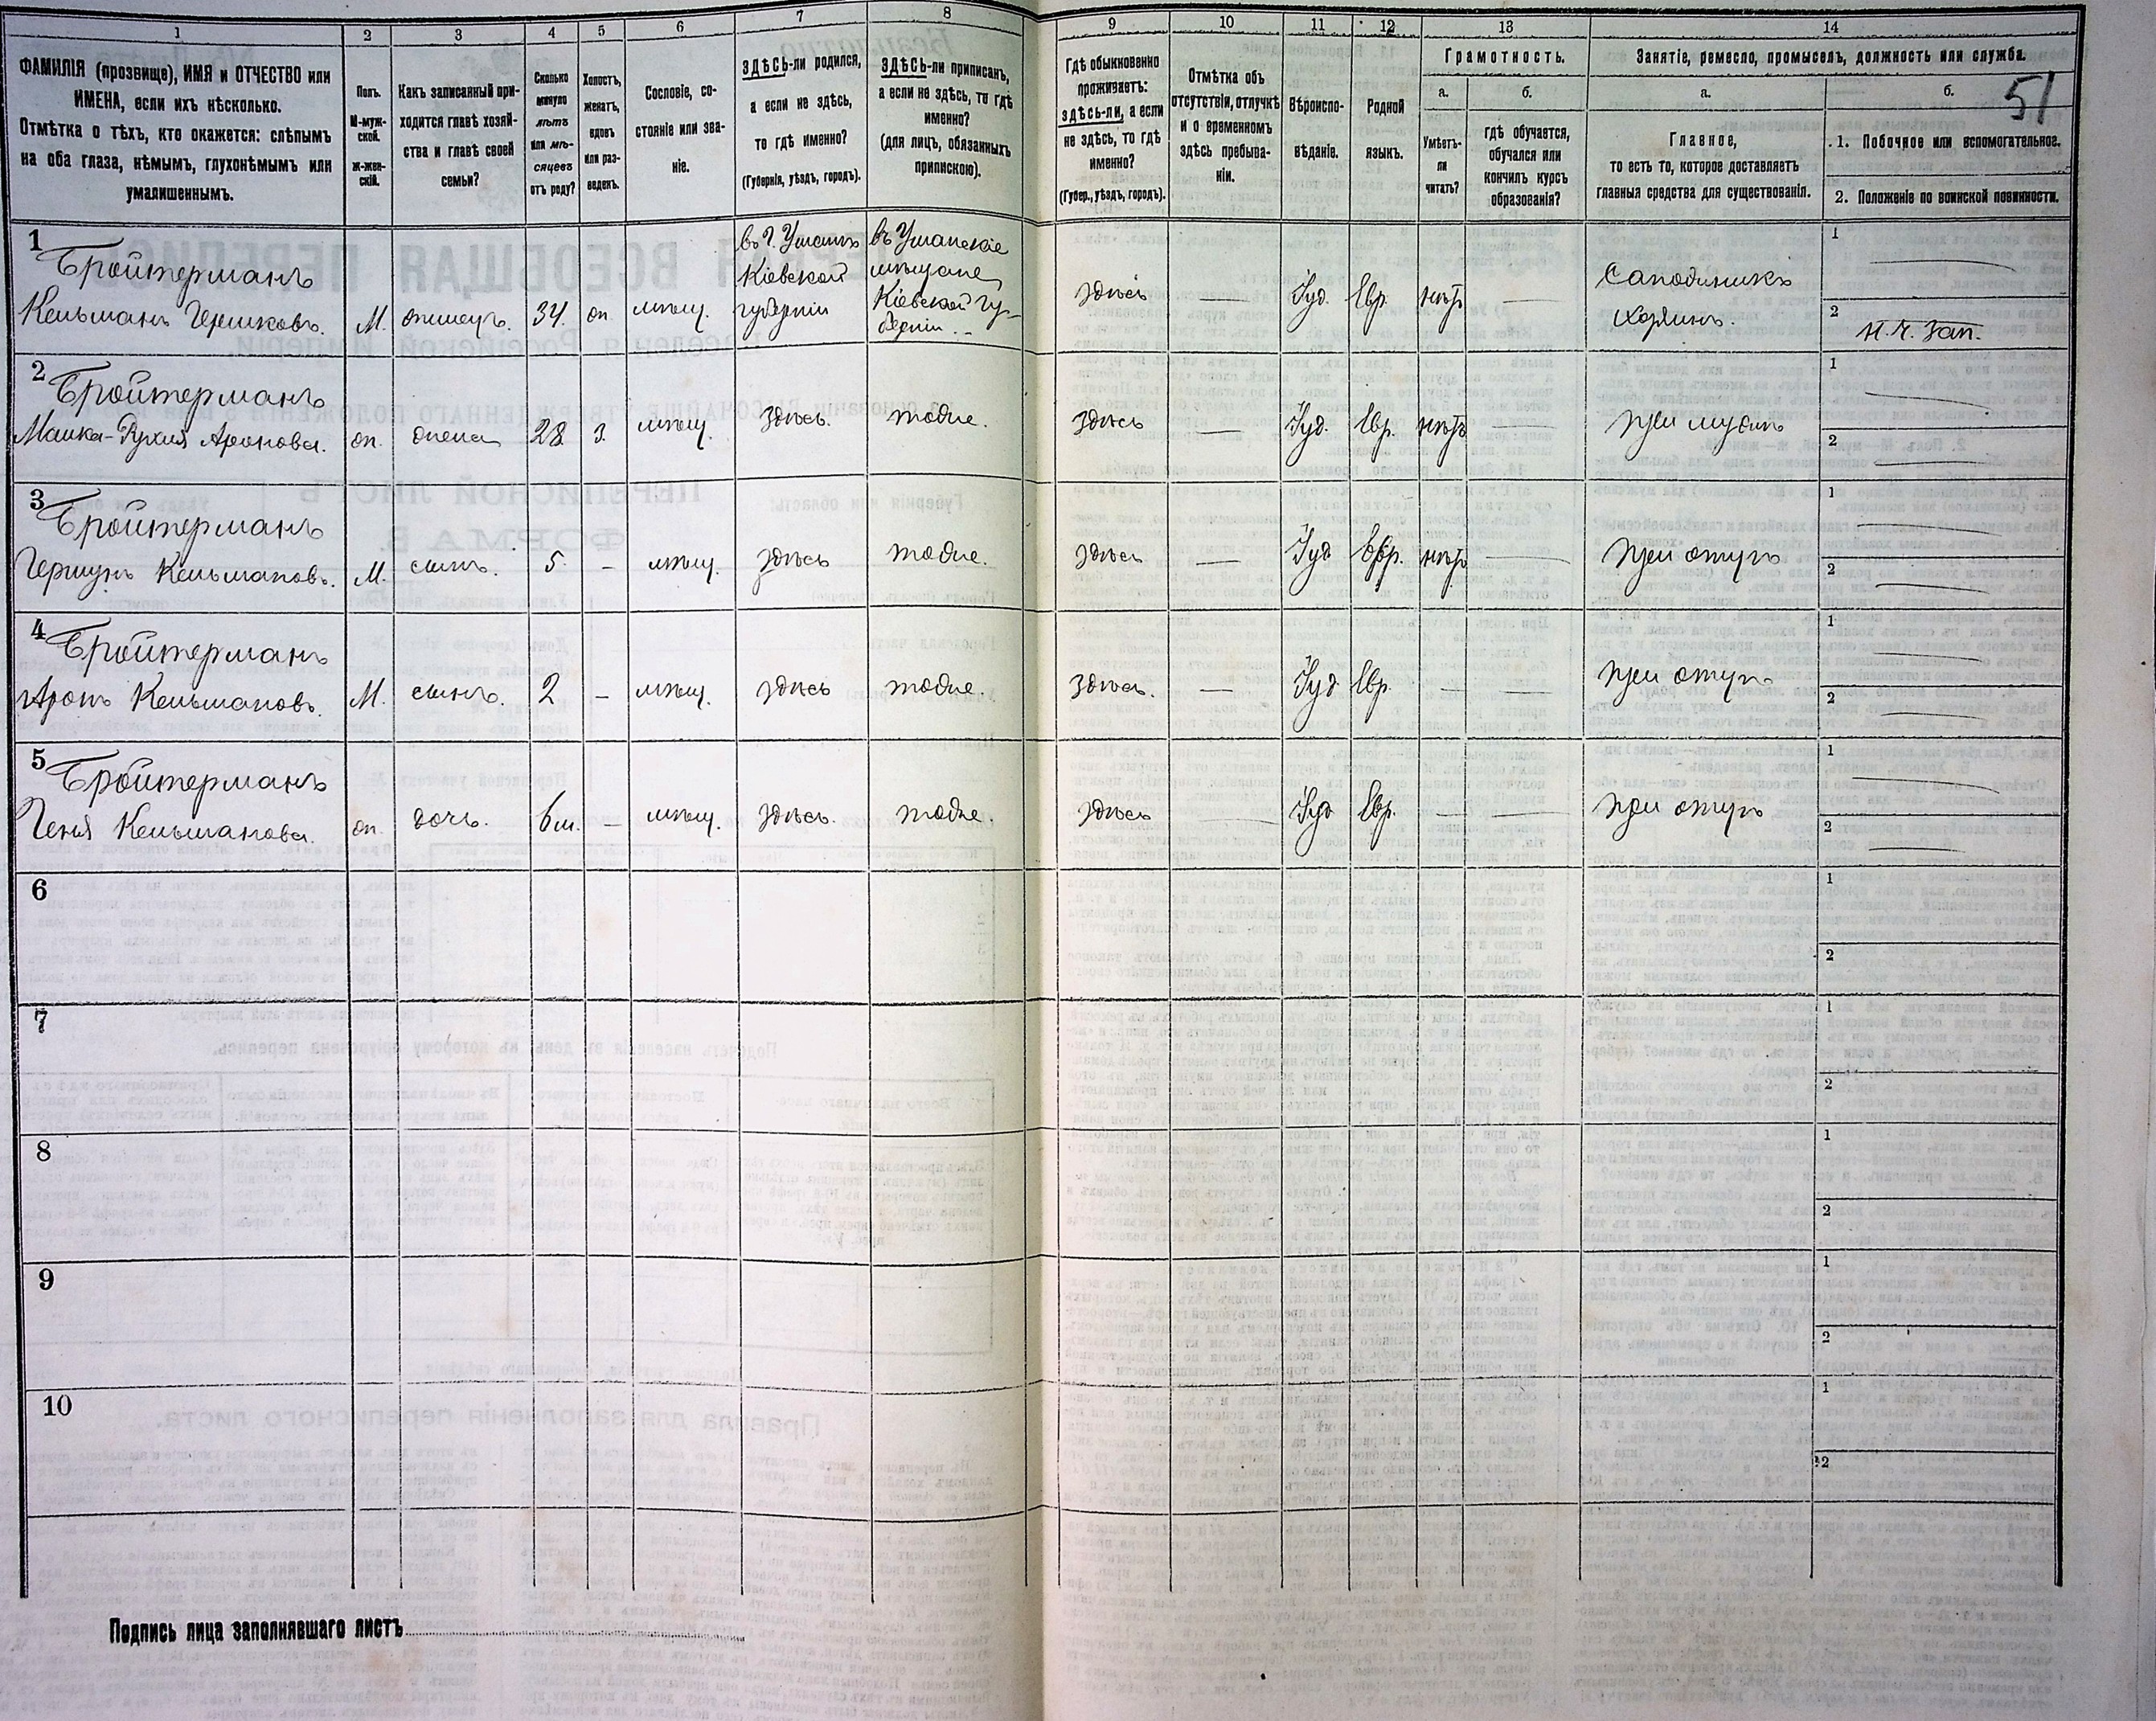 1 2 3 4 5 6 7 8 9 10 11 12 13 14
51
ФАМИЛІЯ (прозвище), ИМЯ и ОТЧЕСТВО или
ИМЕНА, если ихъ нѣсколько.
Отмѣтка о тѣхъ, кто окажется: слѣпымъ
на оба глаза, нѣмымъ, глухонѣмымъ или
умалишеннымъ.
Полъ.
М-муж-
ской.
Ж-жен-
скій.
Какъ записанный при-
ходится главѣ хозяй-
ства и главѣ своей
семьи?
Сколько
минуло
лѣтъ
или мѣ-
сяцевъ
отъ роду?
Холостъ,
женатъ,
вдовъ
или раз-
веденъ.
Сословіе, со-
стояніе или зва-
ніе.
ЗДѢСЬ-ли родился,
а если не здѣсь,
то гдѣ именно?
(Губернія, уѣздъ, городъ).
ЗДѢСЬ-ли приписанъ,
а если не здѣсь, то гдѣ
именно?
(для лицъ, обязанныхъ
припискою).
Гдѣ обыкновенно
проживаетъ:
здѣсь-ли, а если
не здѣсь, то гдѣ
именно?
(Губер., уѣздъ, городъ).
Отмѣтка объ
отсутствіи, отлучкѣ
и о временномъ
здѣсь пребыва-
ніи.
Вѣроиспо-
вѣданіе.
Родной
языкъ.
Грамотность.
а.
Умѣетъ-
ли
читать?
б.
гдѣ обучается,
обучался или
кончилъ курсъ
образованія?
Занятіе, ремесло, промыселъ, должность или служба.
а.
Главное,
то есть то, которое доставляетъ
главныя средства для существованія.
б.
1. Побочное или вспомогательное.
2. Положеніе по воинской повинности.
1 Бройтерманъ
Кельманъ Гершковъ. М. 34. мѣщ.
въ г. Умань
Кіевской
губерніи
въ Уманскіе
мѣщане
Кіевской гу-
берніи.
здѣсь — Іуд. Евр. нѣтъ —
Сапожникъ
хозяинъ.
1 —
2
2 Бройтерманъ
Малка-Рухля Аронова. жена 28 з. мѣщ. здѣсь. тоже. здѣсь — Іуд. Евр. нѣтъ — при мужѣ
1 —
2 —
3 Бройтерманъ
Гершунъ Кельмановъ. М. сынъ. 5. - мѣщ. здѣсь тоже. здѣсь — Іуд Евр. нѣтъ — при отцѣ
1 —
2 —
4 Бройтерманъ
Аронъ Кельмановъ. М. сынъ. 2 - мѣщ. здѣсь тоже. здѣсь. — Іуд Евр. — — при отцѣ
1 —
2 —
5 Бройтерманъ
Геня Кельманова. дочь. 6 м. - мѣщ. здѣсь. тоже. здѣсь — Іуд Евр. — — при отцѣ
1 —
2 —
6 1
2
7 1
2
8 1
2
9 1
2
10 1
2
Подпись лица заполнявшаго листъ